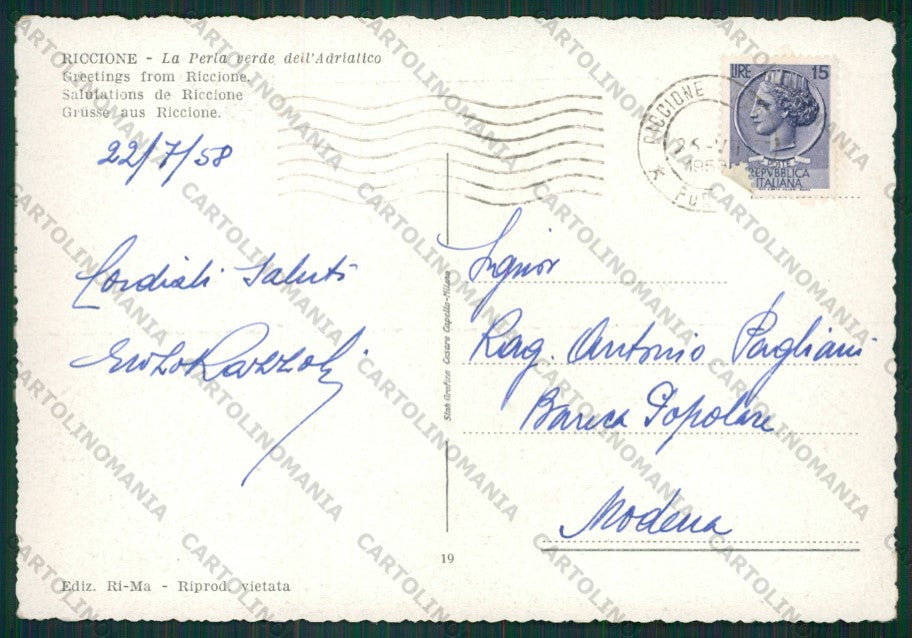 RICCIONE - La Perla verde dell'Adriatico
Greetings from Riccione.
Salutations de Riccione
Grüsse aus Riccione.
22/7/58
Cordiali Saluti
Enzo Razzoli
LIRE 15
POSTE
REPVBBLICA
ITALIANA
RICCIONE
Signor
Rag. Antonio Pagliani
Banca Popolare
Modena
Stab. Grafico Cesare Capello-Milano
19
Ediz. Ri-Ma - Riprod. vietata
CARTOLINOMANIA